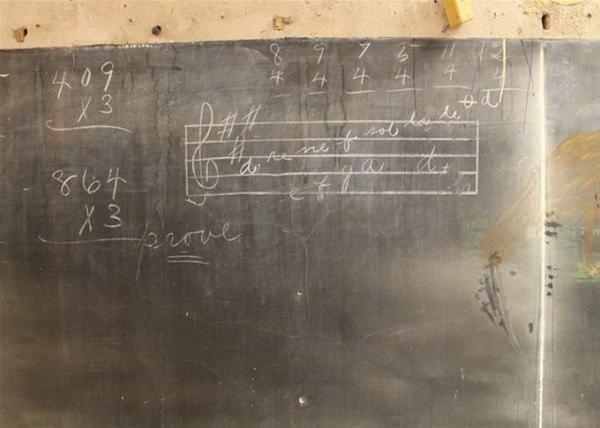 8 9 7 5 11 12
4 4 4 4 4 4
409
X3
do re me f sol la te d
e f g a d
864
X3
prove